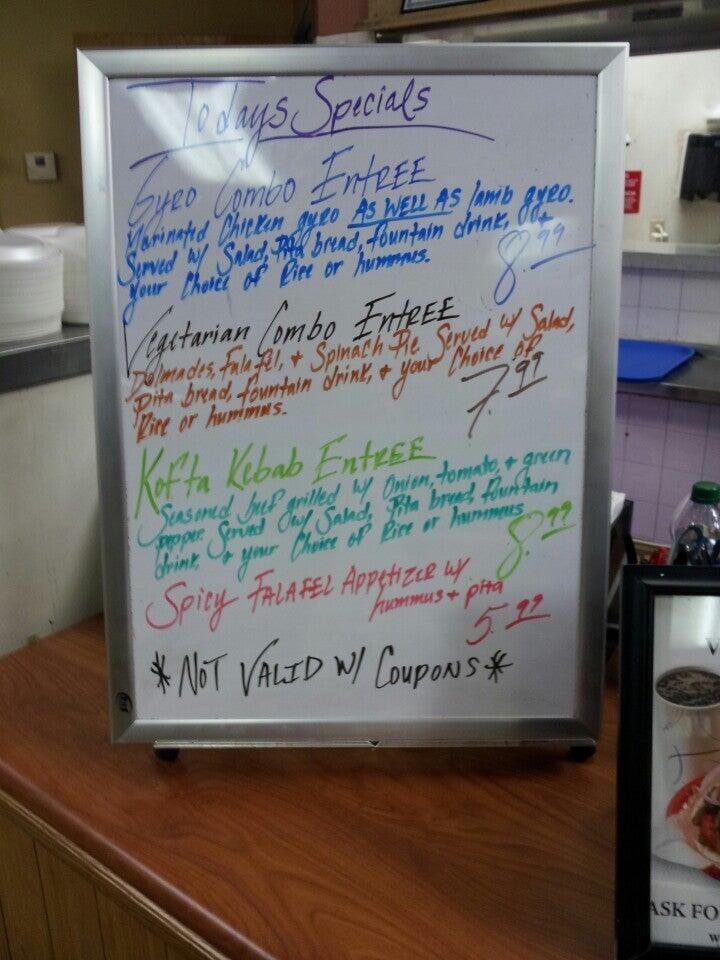 Todays Specials
Gyro Combo Entree
Marinated Chicken gyro AS WELL AS lamb gyro.
Served w/ Salad, Pita bread, fountain drink, &
your Choice of Rice or hummus.
8.99
Vegetarian Combo Entree
Dolmades, Falafel, + Spinach Pie Served w/ Salad,
Pita bread, fountain drink, + your Choice of
Rice or hummus.
7.99
Kofta Kebab Entree
Seasoned beef grilled w/ Onion, tomato, + green
pepper. Served w/ Salad, Pita bread, fountain
drink, + your Choice of Rice or hummus
8.99
Spicy FALAFEL Appetizer w/
hummus + pita
5.99
*NOT VALID W/ COUPONS*
ASK FO